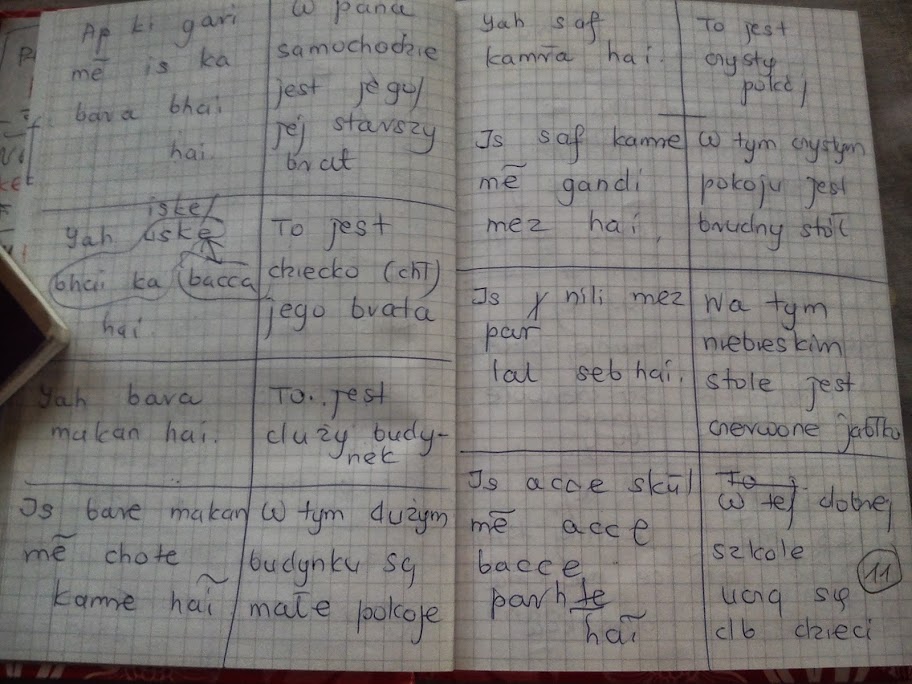 Ap ki gari
mẽ is ka
bara bhai.
hai.
W pana
samochodzie
jest jego/
jej starszy
brat
iske/
Yah uske
bhai ka bacca
hai.
To jest
dziecko (chł)
jego brata
Yah bara
makan hai.
To..jest
duży budy-
nek
Is bare makan
mẽ chote
kamre haĩ
W tym dużym
budynku są
małe pokoje
Yah saf
kamra hai.
To jest
czysty
pokój
Is saf kamre
mẽ gandi
mez hai.
W tym czystym
pokoju jest
brudny stół
Is nili mez
par
lal seb hai.
Na tym
niebieskim
stole jest
czerwone jabłko
Is acce skūl
mẽ acce
bacce
parhte
haĩ
To
W tej dobrej
szkole
uczą się
db dzieci
11